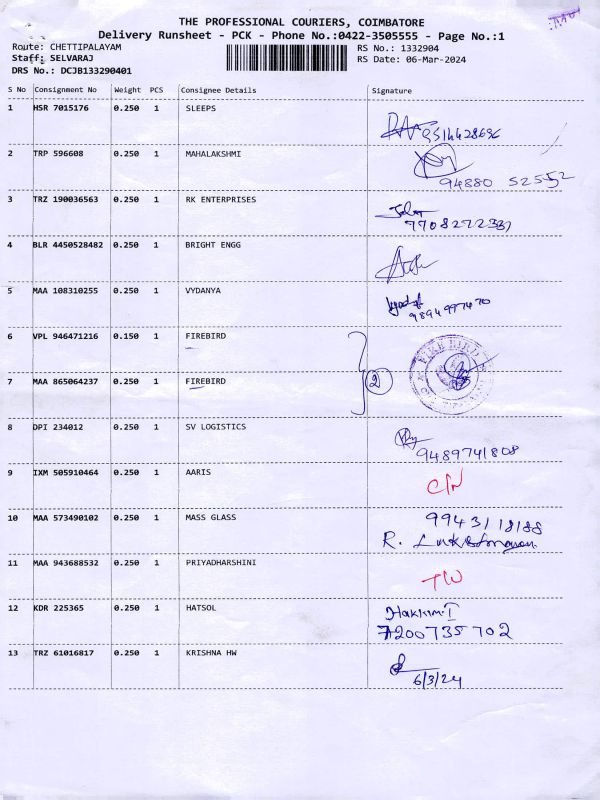 THE PROFESSIONAL COURIERS, COIMBATORE
Delivery Runsheet - PCK - Phone No.:0422-3505555 - Page No.:1
Route: CHETTIPALAYAM RS No.: 1332904
Staff: SELVARAJ RS Date: 06-Mar-2024
DRS No.: DCJB133290401
S No Consignment No Weight PCS Consignee Details Signature
1 HSR 7015176 0.250 1 SLEEPS
2 TRP 596608 0.250 1 MAHALAKSHMI
94880 52552
3 TRZ 190036563 0.250 1 RK ENTERPRISES
4 BLR 4450528482 0.250 1 BRIGHT ENGG
5 MAA 108310255 0.250 1 VYDANYA
9894997470
6 VPL 946471216 0.150 1 FIREBIRD
FIRE BIRD
7 MAA 865064237 0.250 1 FIREBIRD 2
8 DPI 234012 0.250 1 SV LOGISTICS
9489741808
9 IXM 505910464 0.250 1 AARIS
C/N
10 MAA 573490102 0.250 1 MASS GLASS
99431 18188
R.
11 MAA 943688532 0.250 1 PRIYADHARSHINI
12 KDR 225365 0.250 1 HATSOL
Hakkim.I
7200735702
13 TRZ 61016817 0.250 1 KRISHNA HW
6/3/24